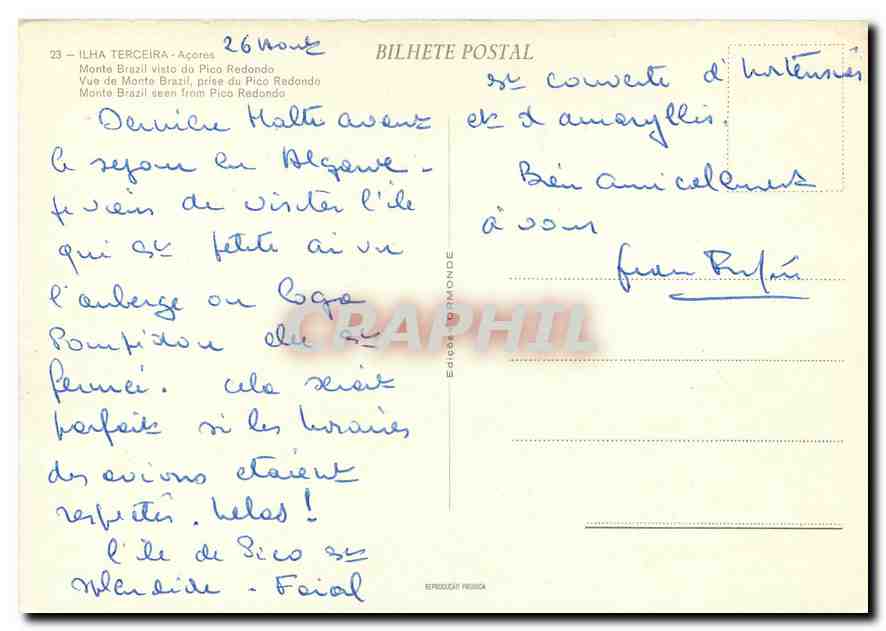 23 — ILHA TERCEIRA - Açores
Monte Brazil visto do Pico Redondo
Vue de Monte Brazil, prise du Pico Redondo
Monte Brazil seen from Pico Redondo
26 Aout
BILHETE POSTAL
Derniere Halte avant
le sejour en Algarve -
je viens de visiter l'ile
qui est petite ai vu
l'auberge ou logea
Pompidou elle est
fermée. Cela serait
parfait si les horaires
des avions etaient
respectés. helas!
l'ile de Pico est
splendide - Faial
est couverte d'hortensias
et d'amaryllis.
Bien amicalement
à vous
Jean
Edição - ORMONDE
CRAPHIL
REPRODUÇÃO PROIBIDA